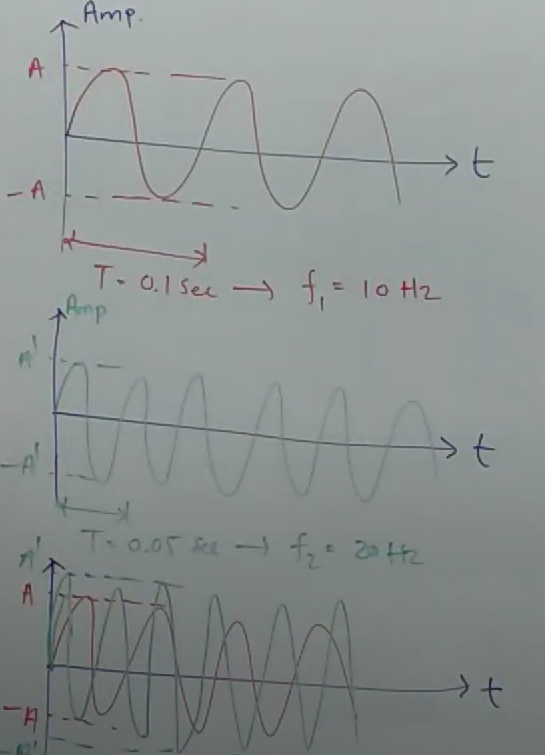 Amp.
A
t
-A
T = 0.1 sec → f₁ = 10 Hz
Amp
A'
t
-A'
T = 0.05 sec → f₂ = 20 Hz
A'
A
t
-A
-A'